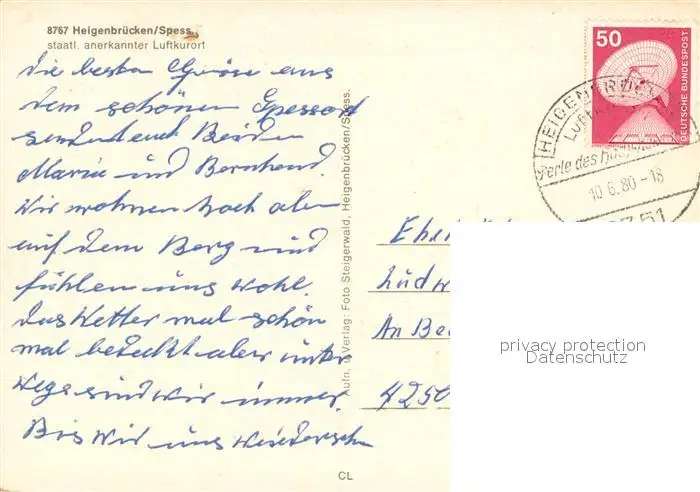 8767 Heigenbrücken/Spess.
staatl. anerkannter Luftkurort
die besten Grüse aus
dem schönen Spessart
sendet euch Beiden
Maria und Bernhard.
Wir wohnen hoch oben
auf dem Berg und
fühlen uns wohl.
das Wetter mal schön
mal bedeckt aber unter
wegs sind wir immer.
Bis wir uns wiedersehn
Aufn. u. Verlag: Foto Steigerwald, Heigenbrücken/Spess.
CL
50
DEUTSCHE BUNDESPOST
HEIGENBRÜCKEN
Perle des
10.6.80-18
8751
An
4250
privacy protection
Datenschutz